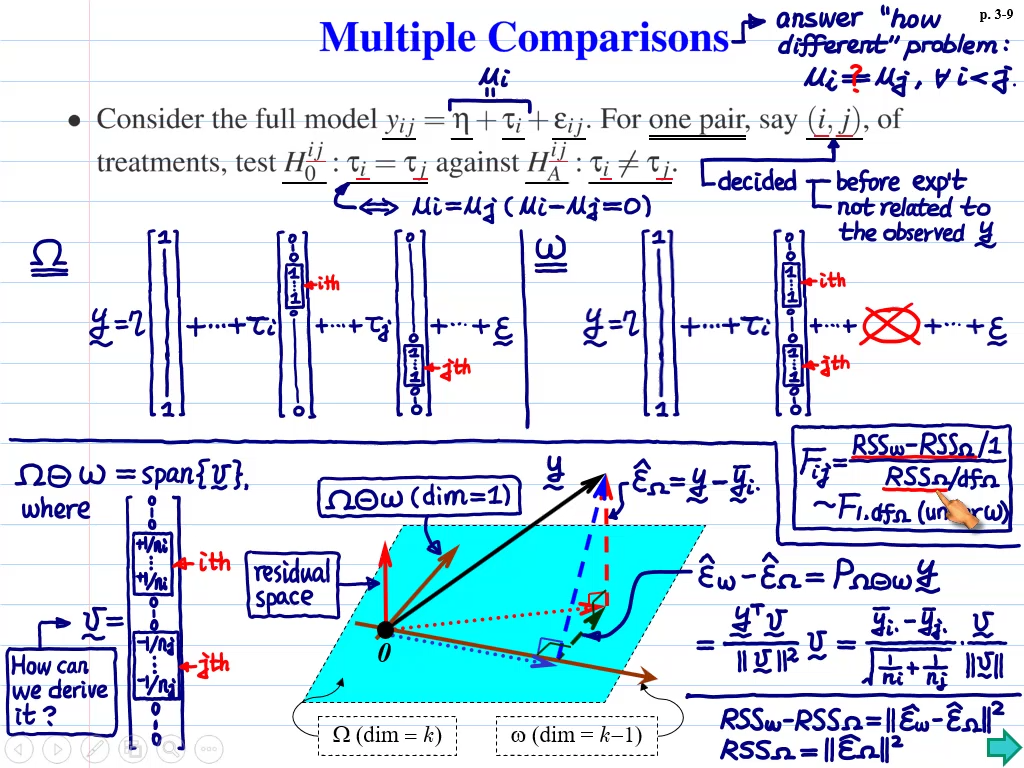 p. 3-9
Multiple Comparisons
answer "how
different" problem:
μi = μj, ∀ i<j.
?
μi
=
• Consider the full model yij = η + τi + εij. For one pair, say (i, j), of
treatments, test H0^ij : τi = τj against HA^ij : τi ≠ τj.
decided
before exp't
not related to
the observed y
⇔ μi=μj (μi−μj=0)
Ω
y = η [1 1] + ··· + τi [0 0 1 ⋮ 1 0 0] + ··· + τj [0 0 1 ⋮ 1 0 0] + ··· + ε
ith
jth
ω
y = η [1 1] + ··· + τi [0 0 1 ⋮ 1 0 0 1 ⋮ 1 0 0] + ··· + + ··· + ε
ith
jth
Fij = (RSSω−RSSΩ/1) / (RSSΩ/dfΩ)
~F1,dfΩ (under ω)
Ω⊖ω = span{v},
where
v = [0 0 +1/ni ⋮ +1/ni 0 0 −1/nj ⋮ −1/nj 0 0 0]
ith
jth
How can
we derive
it?
Ω⊖ω (dim=1)
residual
space
y
ε̂Ω = y − ȳi.
0
Ω (dim = k)
ω (dim = k−1)
ε̂ω − ε̂Ω = PΩ⊖ω y
= (yᵀv / ‖v‖²) v = (ȳi. − ȳj.) / √(1/ni + 1/nj) · v/‖v‖
RSSω−RSSΩ=‖ε̂ω−ε̂Ω‖²
RSSΩ=‖ε̂Ω‖²